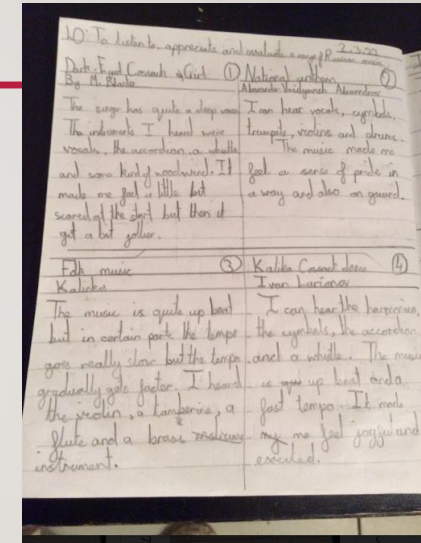 LO: To listen to, appreciate and evaluate a range of Russian music
2.3.22
Dark Eyed Cossack Girl ①
By M.
The singer has quite a deep voice
The instruments I heard were
vocals, the accordion, a whistle
and some kind of woodwind. It
made me feel a little bit
scared at the start but then it
got a bit jollier.
National anthem ②
Alexandrov
I can hear vocals, cymbals,
trumpets, violins and drums.
The music made me
feel a sense of pride in
a way and also on guard.
Folk music ③
Kalinka
The music is quite up beat
but in certain parts the tempo
goes really slow but the tempo
gradually gets faster. I heard
the violin, a tamberine, a
flute and a brass
instrument.
Kalinka Cossack dance ④
Ivan Larionov
I can hear the harmonica,
the cymbals, the accordion
and a whistle. The music
is up beat and a
fast tempo. It made
my me feel joyful and
excited.